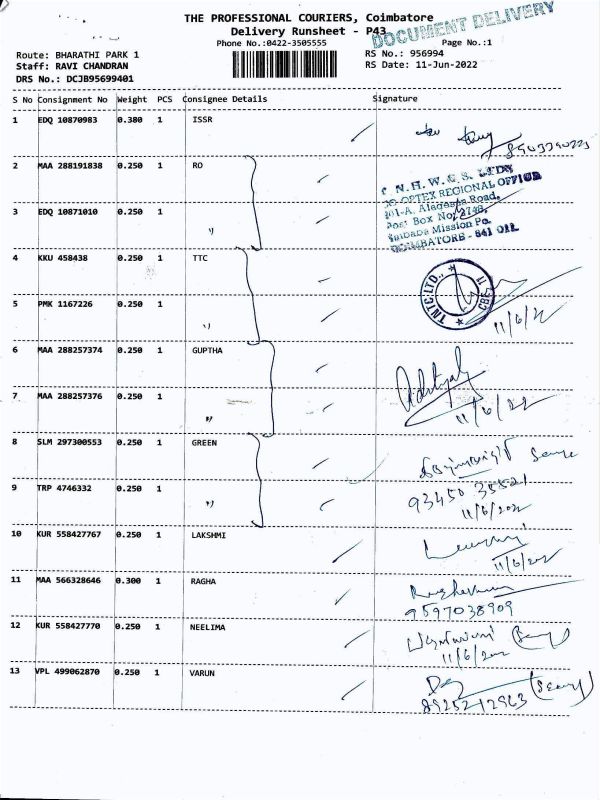 THE PROFESSIONAL COURIERS, Coimbatore
Delivery Runsheet - P43
DOCUMENT DELIVERY
Phone No.:0422-3505555
Page No.:1
Route: BHARATHI PARK 1
RS No.: 956994
Staff: RAVI CHANDRAN
RS Date: 11-Jun-2022
DRS No.: DCJB95699401
S No Consignment No Weight PCS Consignee Details Signature
1 EDQ 10870983 0.380 1 ISSR
2 MAA 288191838 0.250 1 RO
3 EDQ 10871010 0.250 1 "
REGIONAL OFFICE
Post Box No. 2748,
COIMBATORE - 641 011.
4 KKU 458438 0.250 1 TTC
5 PMK 1167226 0.250 1 "
TNTC LTD.,
11/6/22
6 MAA 288257374 0.250 1 GUPTHA
7 MAA 288257376 0.250 1 "
11/6/22
8 SLM 297300553 0.250 1 GREEN
9 TRP 4746332 0.250 1 "
93450 35521
11/6/2022
10 KUR 558427767 0.250 1 LAKSHMI
11/6/2022
11 MAA 566328646 0.300 1 RAGHA
9597038909
12 KUR 558427770 0.250 1 NEELIMA
11/6/2022
13 VPL 499062870 0.250 1 VARUN
8925212963